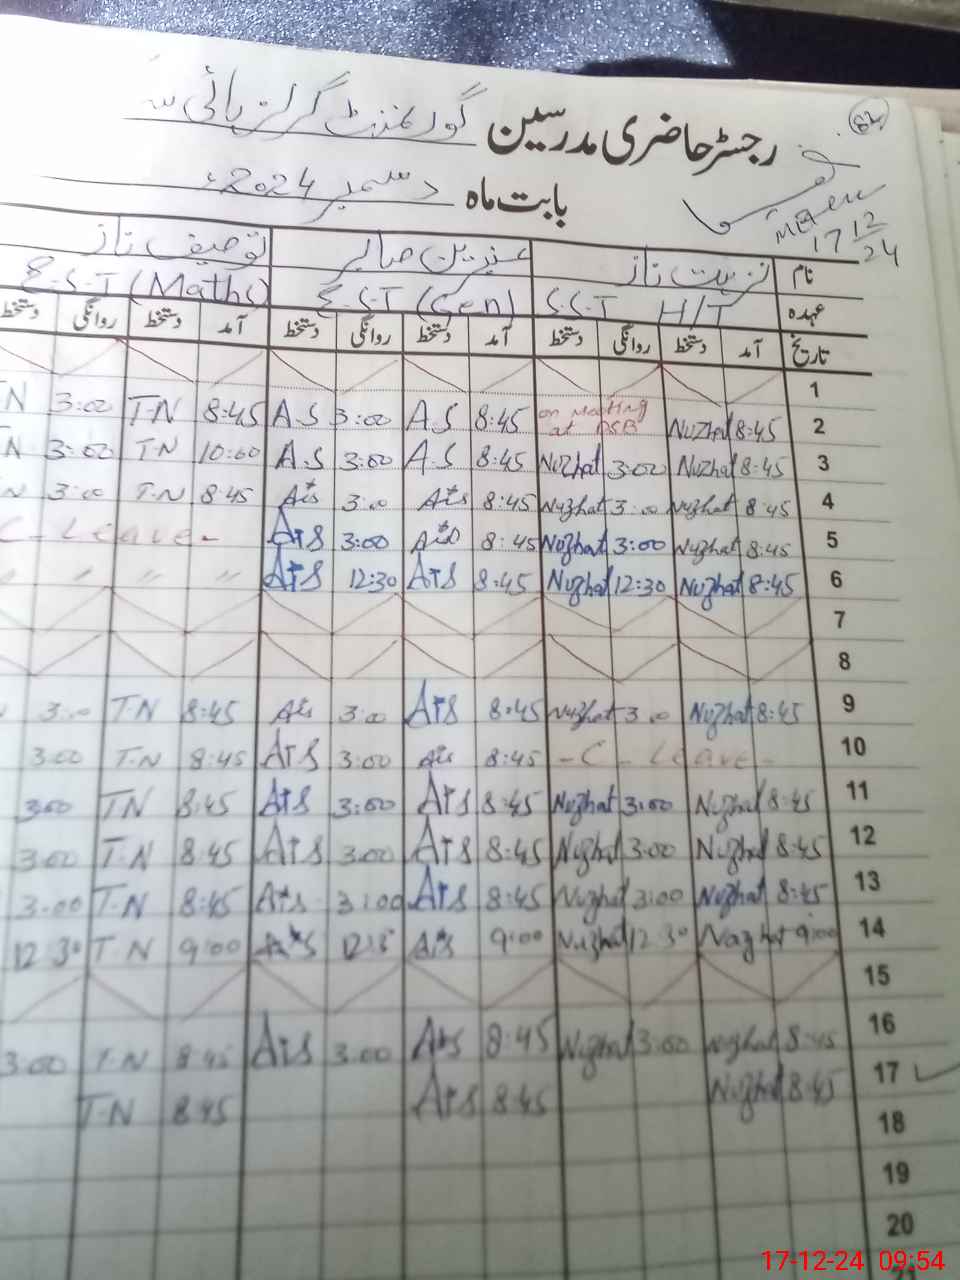 62
رجسٹر حاضری مدرسین گورنمنٹ گرلز ہائی
بابت ماہ دسمبر 2024ء
MEA
17 12/24
نام نزہت ناز عنبرین صابر توصیف ناز
عہدہ S.S.T H/T E.S.T (Gen) E.S.T (Maths)
تاریخ آمد دستخط روانگی دستخط آمد دستخط روانگی دستخط آمد دستخط روانگی دستخط
1
2 8:45 Nuzhat on Meeting at DSB 8:45 A.S 3:00 A.S 8:45 T-N 3:00 T-N
3 8:45 Nuzhat 3:00 Nuzhat 8:45 A.S 3:00 A.S 10:00 T-N 3:00 TN
4 8:45 Nuzhat 3:00 Nuzhat 8:45 Ats 3:00 Ats 8:45 T-N 3:00 N
5 8:45 Nuzhat 3:00 Nuzhat 8:45 Ats 3:00 AtS C - Leave -
6 8:45 Nuzhat 12:30 Nuzhat 8:45 AtS 12:30 AtS " " " "
7
8
9 8:45 Nuzhat 3:00 Nuzhat 8:45 AtS 3:00 Ats 8:45 T-N 3:00
10 - C - Leave - 8:45 Ats 3:00 AtS 8:45 T-N 3:00
11 8:45 Nuzhat 3:00 Nuzhat 8:45 AtS 3:00 AtS 8:45 TN 3:00
12 8:45 Nuzhat 3:00 Nuzhat 8:45 AtS 3:00 AtS 8:45 T-N 3:00
13 8:45 Nuzhat 3:00 Nuzhat 8:45 AtS 3:00 AtS 8:45 T-N 3:00
14 9:00 Nuzhat 12:30 Nuzhat 9:00 AtS AtS 9:00 T-N 12:30
15
16 8:45 Nuzhat 3:00 Nuzhat 8:45 AtS 3:00 AtS 8:45 T-N 3:00
17 8:45 Nuzhat 8:45 AtS 8:45 T-N
18
19
20
17-12-24 09:54